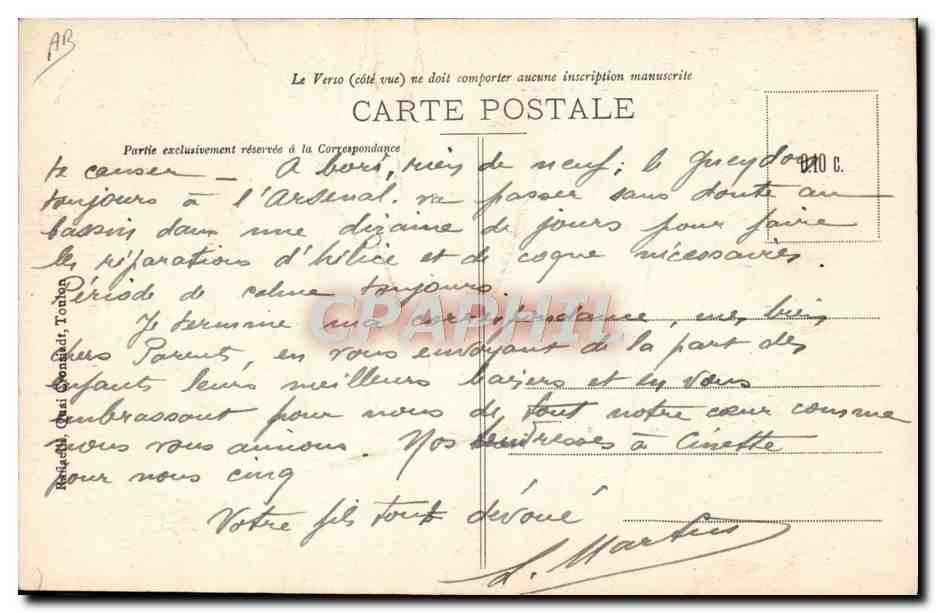 AB
Le Verso (côté vue) ne doit comporter aucune inscription manuscrite
CARTE POSTALE
Partie exclusivement réservée à la Correspondance
0.10 c.
te causer _ A bord, rien de neuf; le Gueydon
toujours à l'Arsenal. va passer sans doute au
bassin dans une dizaine de jours pour faire
les réparations d'hélice et de coque nécessaires.
Période de calme toujours.
Je termine ma correspondance, mes bien
chers Parents, en vous envoyant de la part des
enfants leurs meilleurs baisers et en vous
embrassant pour nous de tout notre cœur comme
nous vous aimons. Nos tendresses à Ginette
pour nous cinq
Votre fils tout dévoué
Quai Cronstadt, Toulon
CPAPHIL